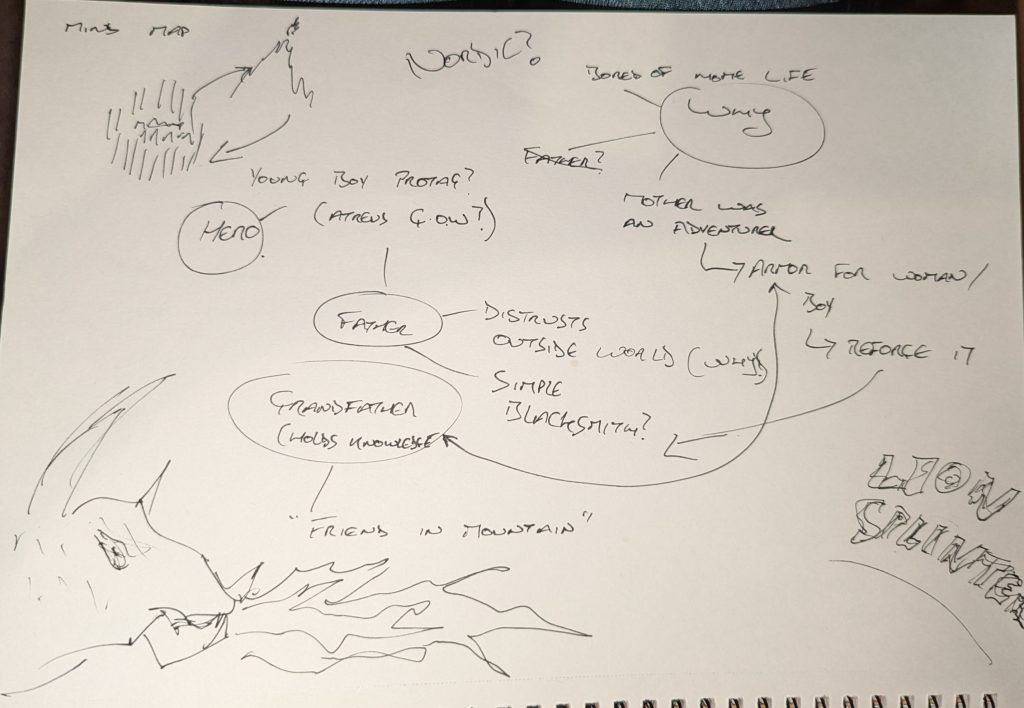 MIND MAP
NORDIC?
BORED OF HOME LIFE
WHY
FATHER?
MOTHER WAS
AN ADVENTURER
ARMOR FOR WOMAN/
BOY
REFORGE IT
YOUNG BOY PROTAG?
(ATREUS G.O.W?)
HERO
FATHER
DISTRUSTS
OUTSIDE WORLD (WHY?)
SIMPLE
BLACKSMITH?
GRANDFATHER
(HOLDS KNOWLEDGE
"FRIEND IN MOUNTAIN"
LEON
SPLINTER